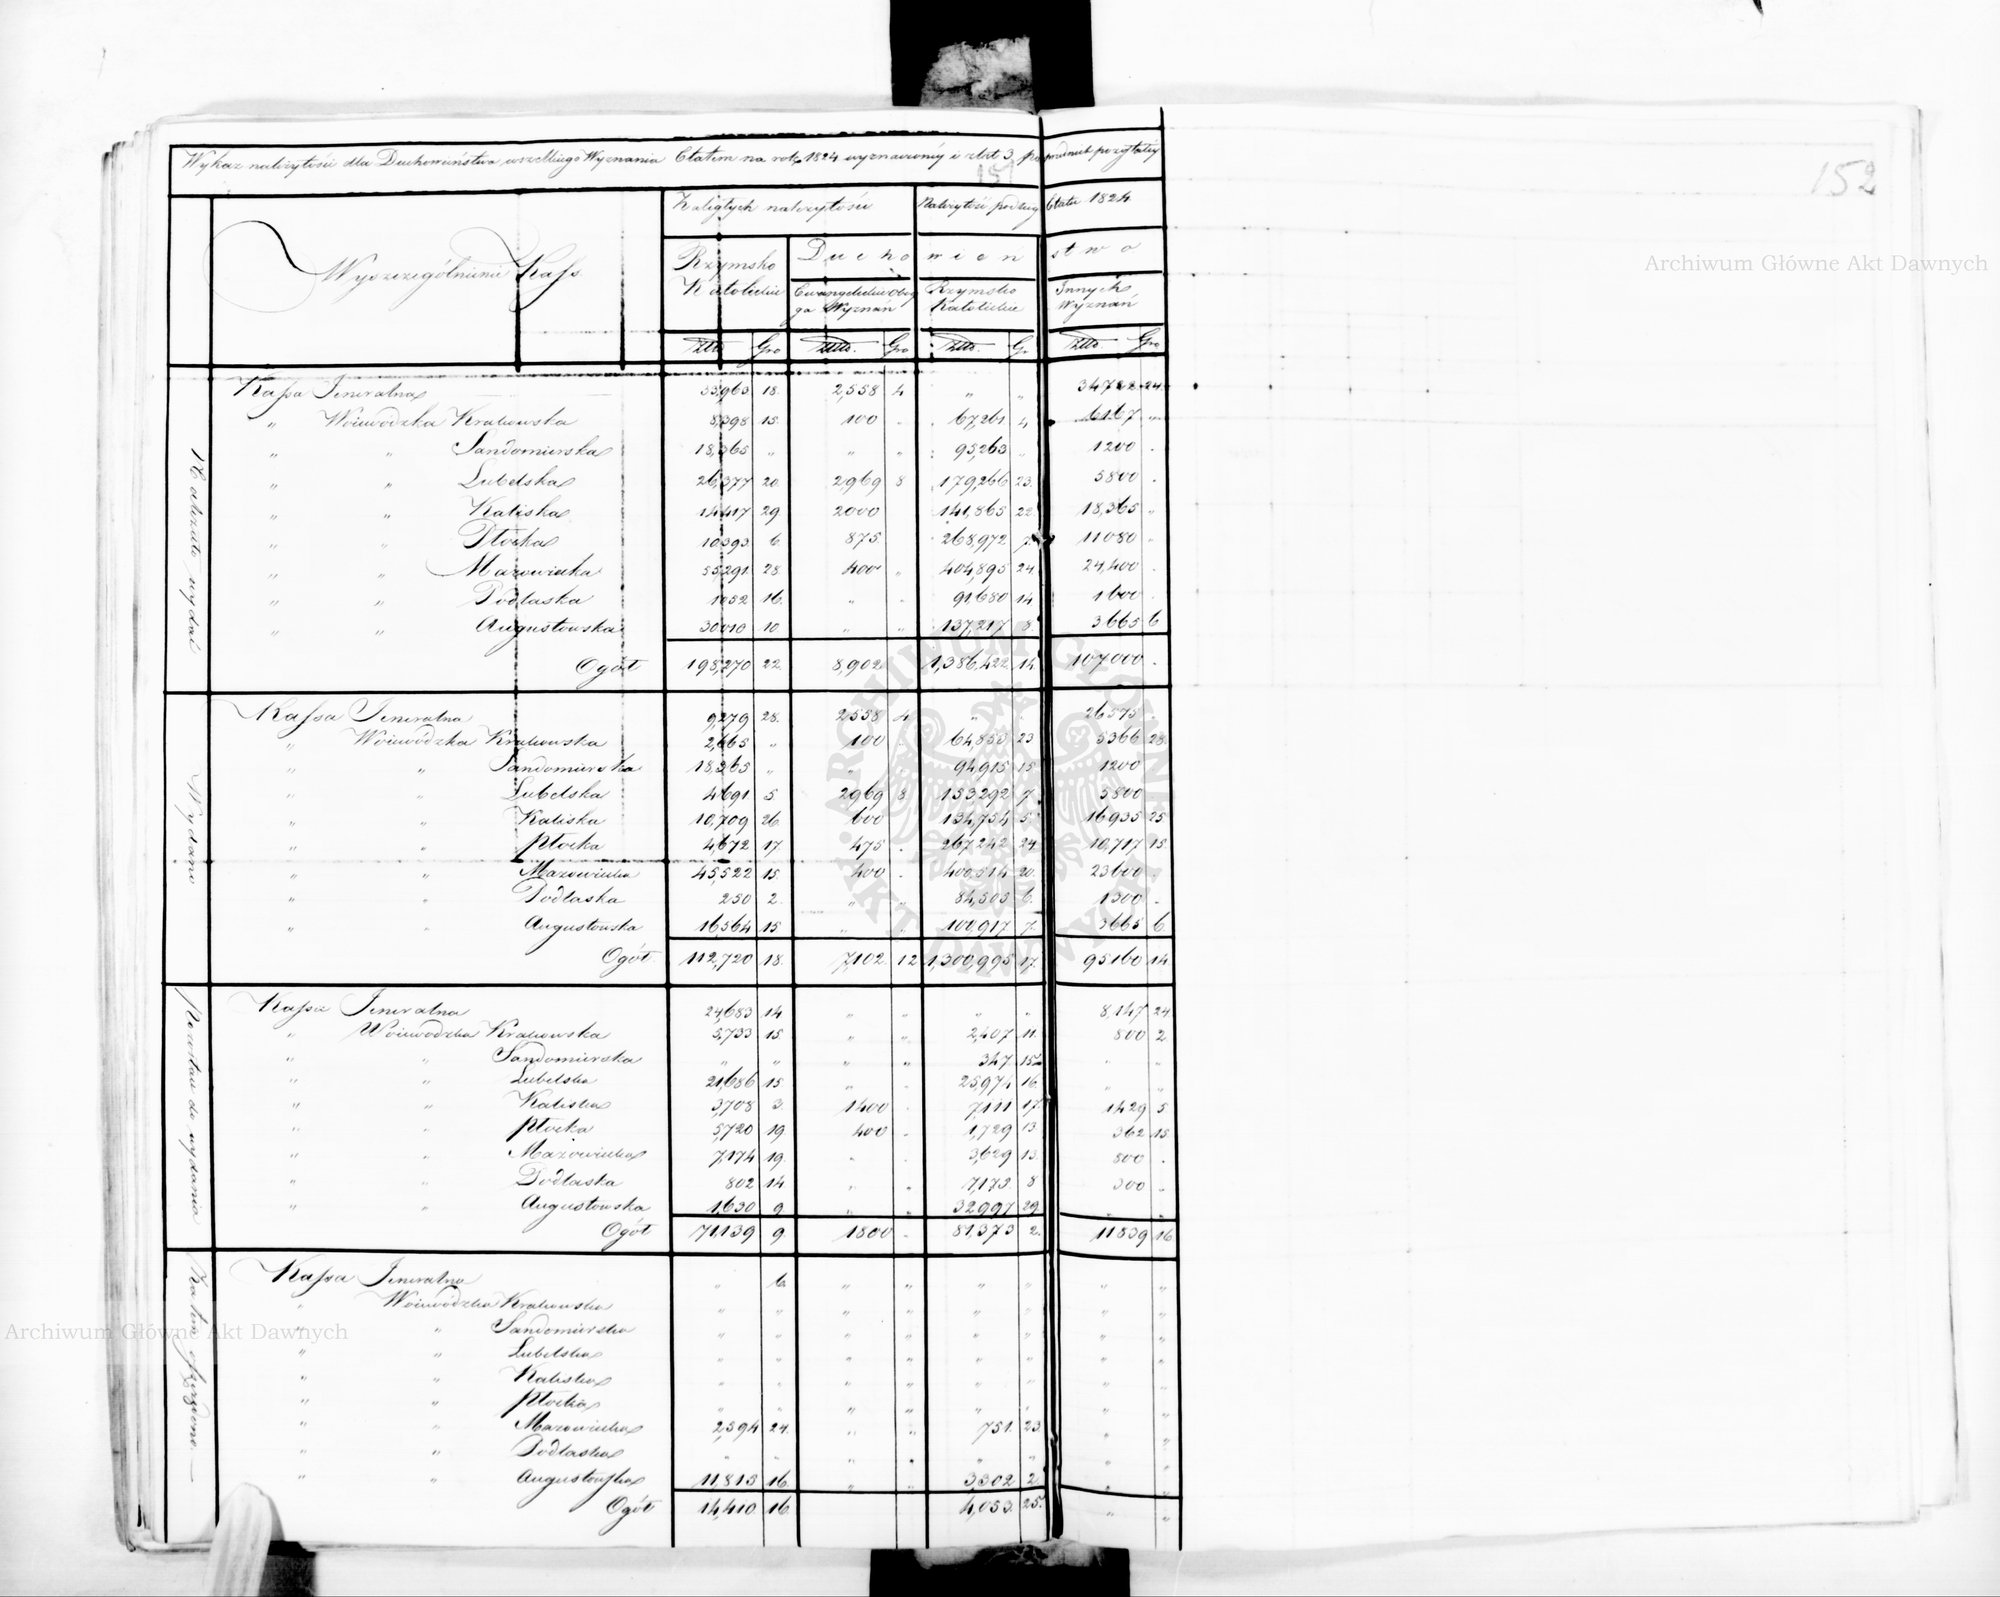 Wykaz należytości dla Duchowieństwa wszelkiego Wyznania Etatem na rok 1824 wyznaczonéy i z lat 3
151
152
Zaległych należytości Należytość podług Etatu 1824
Wyszczególnienie Kass
Rzymsko Katolickie
Duchowieństwo
Ewangelickie Wyznań
Rzymsko Katolickie
Innych Wyznań
Złto. Gro Złto. Gro Złto. Gr Złto. Gro
Należało wydać
Kassa Jeneralna 33,963 18 2,558 4 " " 34722 24
" Woiewódzka Krakowska 8,398 15 100 67,261 4 6167
" " Sandomierska 18,365 " " " 95,263 " 1200
" " Lubelska 26,377 20 2,969 8 179,266 23 5800
" " Kaliska 14417 29 2000 141,865 22 18,365 "
" " Płocka 10393 6 875 268,972 7 11080
" " Mazowiecka 55291 28 400 " 404,895 24 24,400
" " Podlaska 1052 16 " 91,680 14 1600
" " Augustowska 30010 10 " " 137,217 8 3665 6
Ogół 198,270 22 8,902 1,386,422 14 107000
Wydano
Kassa Jeneralna 9,279 28 2558 4 26575
" Woiewódzka Krakowska 2,665 " 100 64,853 23 5366 28
" " Sandomierska 18,365 " " 94,915 15 1200
" " Lubelska 4691 5 2969 8 153292 7 5800
" " Kaliska 10,709 26 600 134,754 5 16935 25
" " Płocka 4,672 17 475 267242 24 10,717 15
" " Mazowiecka 45,522 15 400 400,514 20 23600
" " Podlaska 250 2 " " 84,503 6 1300
" " Augustowska 16564 15 " 100,917 7 3665 6
Ogół 112,720 18 7,102 12 1,300,995 17 95160 14
Pozostaie do wydania
Kassa Jeneralna 24,683 14 " " " " 8,147 24
" Woiewódzka Krakowska 5,733 15 " " 2,407 11 800 2
" " Sandomierska " " " " 347 15 " "
" " Lubelska 21,686 15 " 25,974 16 " "
" " Kaliska 3,708 3 1400 7,111 17 1429 5
" " Płocka 5,720 19 400 1,729 13 362 15
" " Mazowiecka 7,174 19 " 3,629 13 800
" " Podlaska 802 14 " " 7,173 8 300
" " Augustowska 1,630 9 " " 32,997 29
Ogół 71,139 9 1800 81,373 2 11839 16
Kassa Jeneralna " 6 " " " " " "
" Woiewódzka Krakowska " " " " " " " "
" " Sandomierska " " " " " " " "
" " Lubelska " " " " " " " "
" " Kaliska " " " " " " " "
" " Płocka " " " " " " " "
" " Mazowiecka 2,594 24 " " 751 23 " "
" " Podlaska " " " " " " " "
" " Augustowska 11,813 16 " " 3,302 2 " "
Ogół 14,410 16 4,053 25 " "
Archiwum Główne Akt Dawnych
Archiwum Główne Akt Dawnych
ARCHIWUM GŁÓWNE AKT DAWNYCH